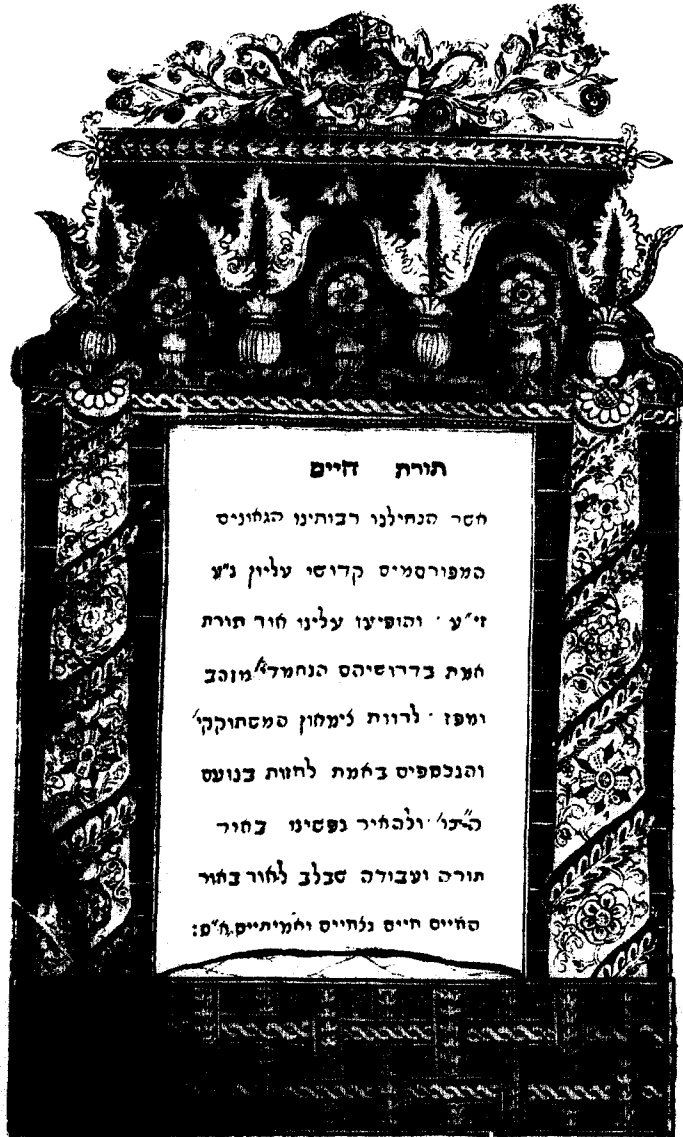 תורת חיים
אשר הנחילנו רבותינו הגאונים
המפורסמים קדושי עליון נ״ע
זי״ע · והופיעו עלינו אור תורת
אמת בדרושיהם הנחמדי׳ מזהב
ומפז · לרוות צימאון המשתוקקי׳
והנכספים באמת לחזות בנועם
ולהאיר נפשינו באור
תורה ועבודה שבלב לאור באור
החיים חיים נצחיים ואמיתיים א״ס: